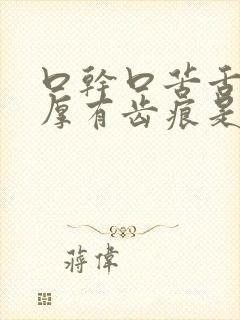 口幹口苦舌
厚有齿痕是
蒋偉